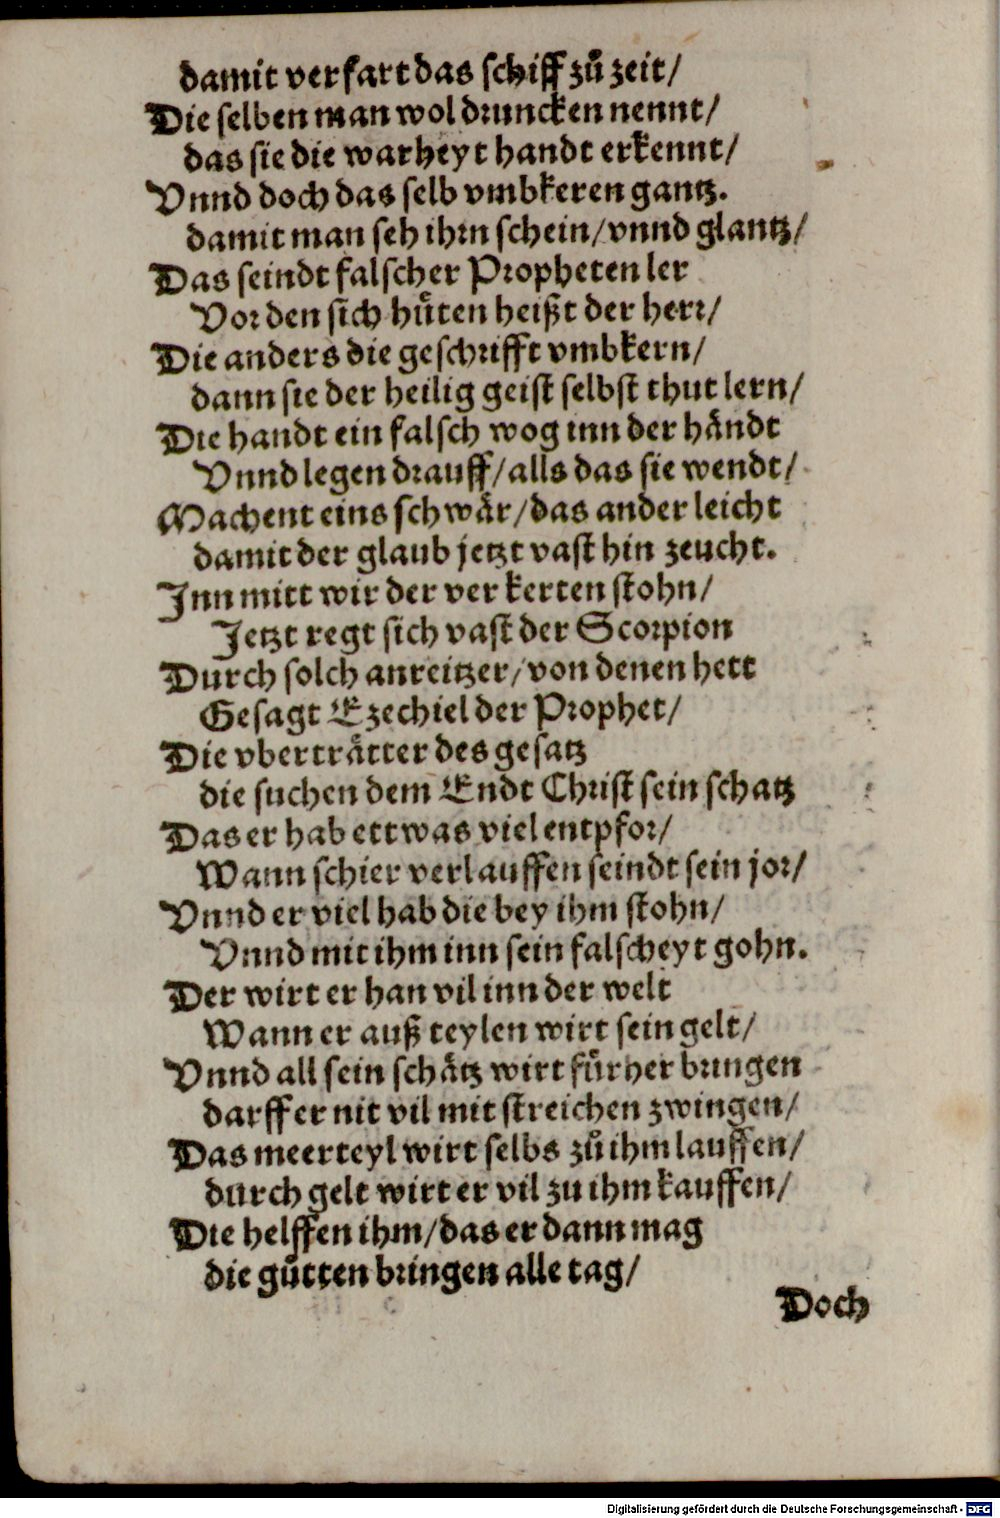 damit verfart das schiff zů zeit/
Die selben man wol druncken nennt/
das sie die warheyt handt erkennt/
Vnnd doch das selb vmbkeren gantz.
damit man seh ihrn schein/vnnd glantz/
Das seindt falscher Propheten ler
Vor den sich hůten heißt der herr/
Die anders die geschrifft vmbkern/
dann sie der heilig geist selbst thut lern/
Die handt ein falsch wog inn der håndt
Vnnd legen drauff/alls das sie wendt/
Machent eins schwår/das ander leicht
damit der glaub jetzt vast hin zeucht.
Inn mitt wir der verkerten stohn/
Jetzt regt sich vast der Scorpion
Durch solch anreitzer/von denen hett
Gesagt Ezechiel der Prophet/
Die vbertråtter des gesatz
die suchen dem Endt Christ sein schatz
Das er hab ettwas viel entpfor/
Wann schier verlauffen seindt sein jor/
Vnnd er viel hab die bey ihm stohn/
Vnnd mit ihm inn sein falscheyt gohn.
Der wirt er han vil inn der welt
Wann er auß teylen wirt sein gelt/
Vnnd all sein schåtz wirt fürher bringen
darff er nit vil mit streichen zwingen/
Das meerteyl wirt selbs zů ihm lauffen/
durch gelt wirt er vil zu ihm kauffen/
Die helffen ihm/das er dann mag
die gůtten bringen alle tag/
Doch
Digitalisierung gefördert durch die Deutsche Forschungsgemeinschaft - DFG